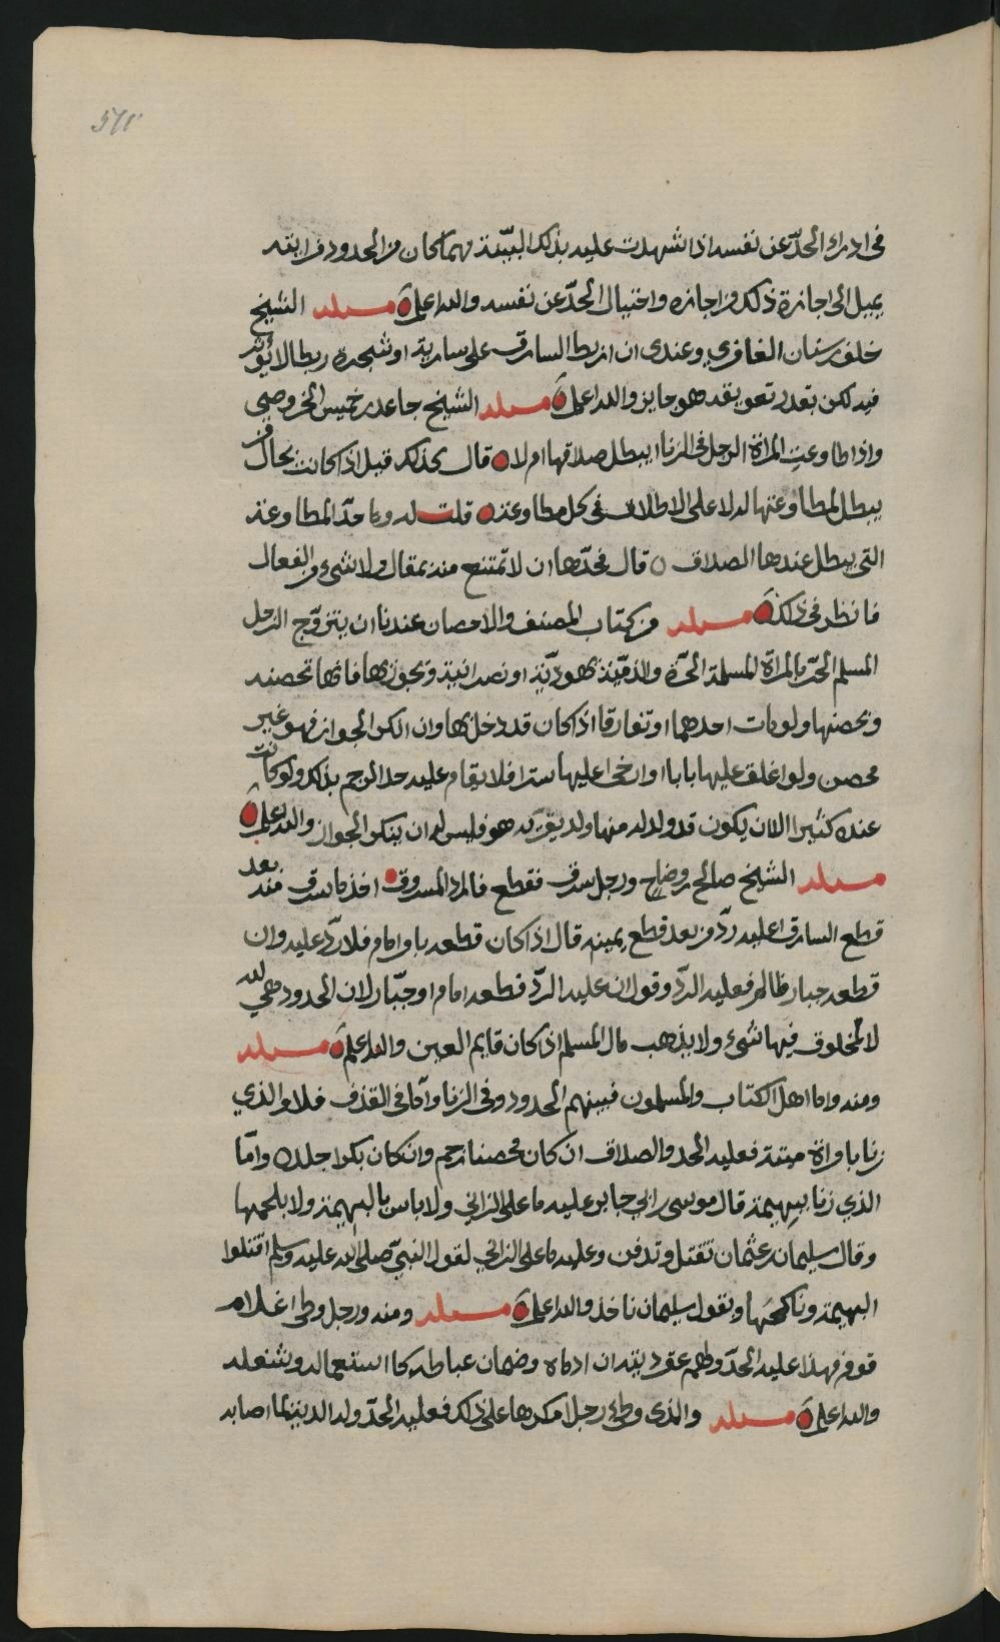 في ادراء الحدّ عن نفسه اذا شهدت عليه بذلك البيّنة مهما كان من الحدود فرايته
يميل الى اجازة ذلك من اجازه واختيال الحدّ عن نفسه والله اعلم مسئلة الشيخ
خلف بن سنان الغافري وعندي ان ربط السارق على سارية او شجرة ربطا لا يؤثر
فيه لكن بقدر تعويقه هو جايز والله اعلم مسئلة الشيخ جاعد بن خميس الخروصي
واذا طاوعت المراة الرجل في الزنا ايبطل صداقها ام لا قال كذلك قيل اذا كانت بحال من
يبطل لمطاوعتها له لا على الاطلاق في كل مطاوعة قلت له وما حدّ المطاوعة
التي يبطل عندها الصداق قال فحدّها ان لا تمتنع منه بمقال ولا شيء من الفعال
فانظر في ذلك مسئلة من كتاب المصنف والاحصان عندنا ان يتزوّج الرجل
المسلم الحرّ بالمراة المسلمة الحرّة والذمّيّة يهوديّة او نصرانية ويجوز بها فانها تحصنه
ويحصنها ولو مات احدهما او تفارقا اذا كان قد دخل بها وان انكر الجواز فهو غير
محصن ولو اغلق عليها بابا او ارخى عليها سترا فلا يقام عليه حد الرجم بذلك ولو كانت
عنده كثيرا الا ان يكون قد ولد له منها ولد يقر به هو فليس له ان ينكر الجواز والله اعلم
مسئلة الشيخ صالح بن وضاح ورجل سرق فقطع فاراد المسروق اخذ ما سرق منه بعد
قطع السارق اعليه ردّ من بعد قطع يمينه قال اذا كان قطعه بامر امام فلا ردّ عليه وان
قطعه جبار ظالم فعليه الردّ وقول ان عليه الردّ قطعه امام او جبّار لان الحدود هي لله
لا لمخلوق فيها شيء ولا يذهب مال المسلم اذ كان قايم العين والله اعلم مسئلة
ومنه واما اهل الكتاب والمسلمون فبينهم الحدود وفي الزنا وامّا في القذف فلا والذي
زنا بامراة ميتة فعليه الحد والصداق ان كان محصنا رجم وان كان بكرا جلد وامّا
الذي زنا ببهيمة قال موسى بن ابي جابر عليه ما على الزاني ولا باس بالبهيمة ولا بلحمها
وقال سليمان بن عثمان تقتل وتدفن وعليه ما على الزاني لقول النبيّ صلى الله عليه وسلم اقتلوا
البهيمة وناكحها وبقول سليمان ناخذ والله اعلم مسئلة ومنه ورجل وطئ غلام
قوم فهذا عليه الحدّ ولهم عقر ديته ان ادماه وضمان استعماله وشغله
والله اعلم مسئلة والذي وطئ رجلا مكرها على ذلك فعليه الحدّ وله الدية لما اصابه